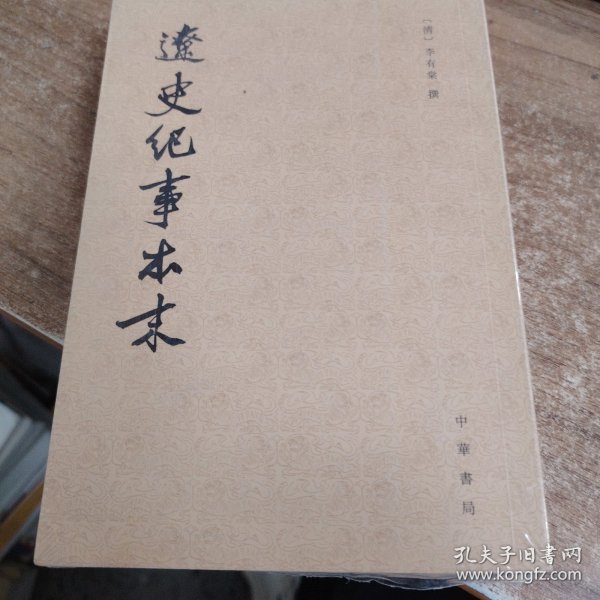 〔清〕李有棠 撰
遼史紀事本末
中華書局
孔夫子旧书网
www.kongfz.com